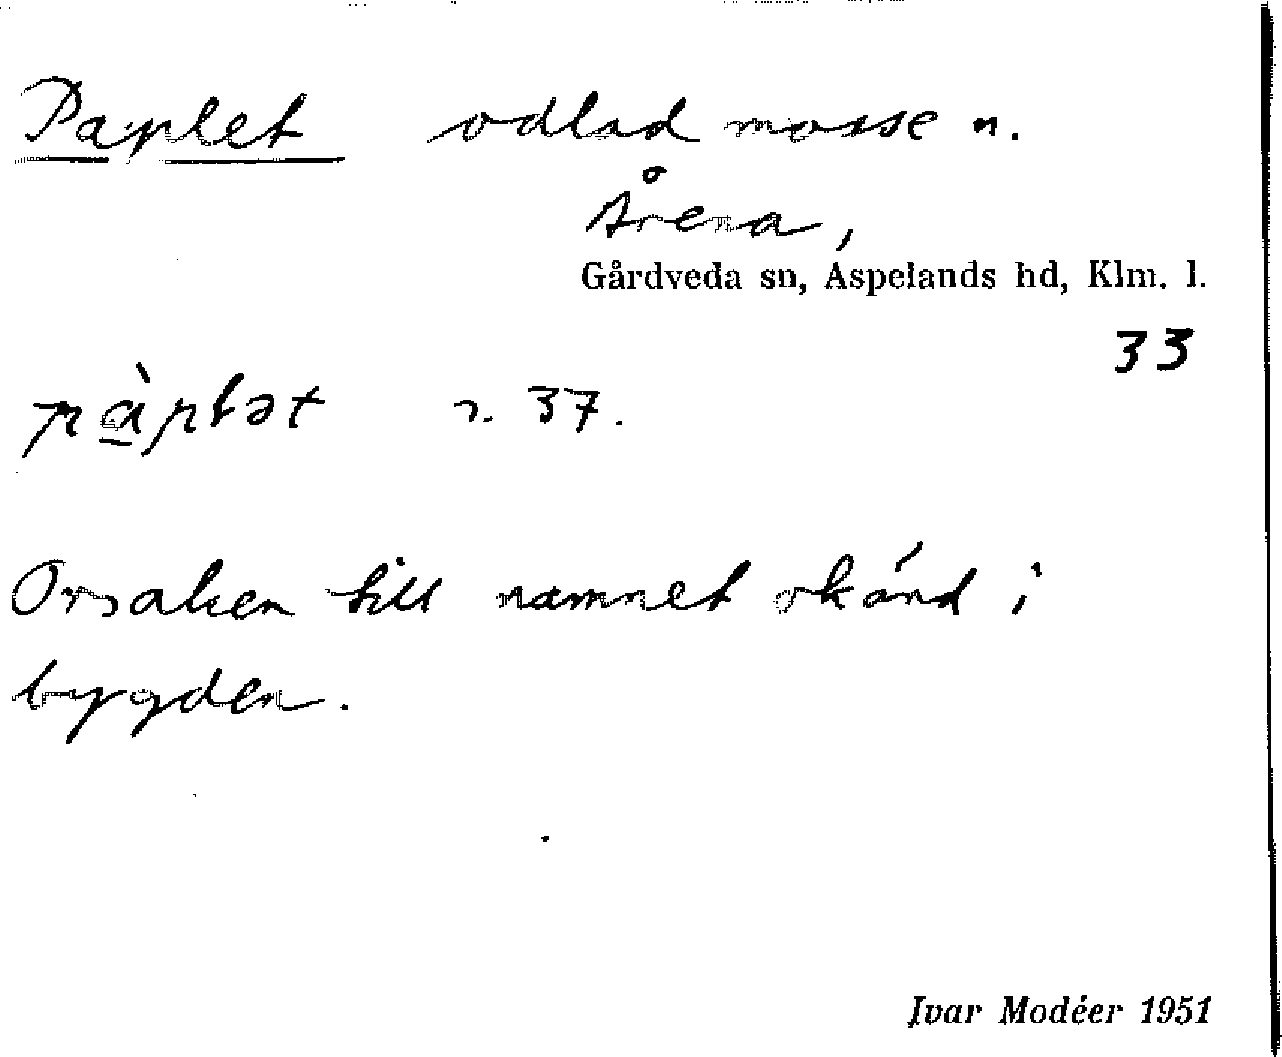 Paplet odlad mosse n.
Årena,
Gårdveda sn, Aspelands hd, Klm. l.
33
pàplət s. 37.
Orsaken till namnet okänd i
bygden.
Ivar Modéer 1951